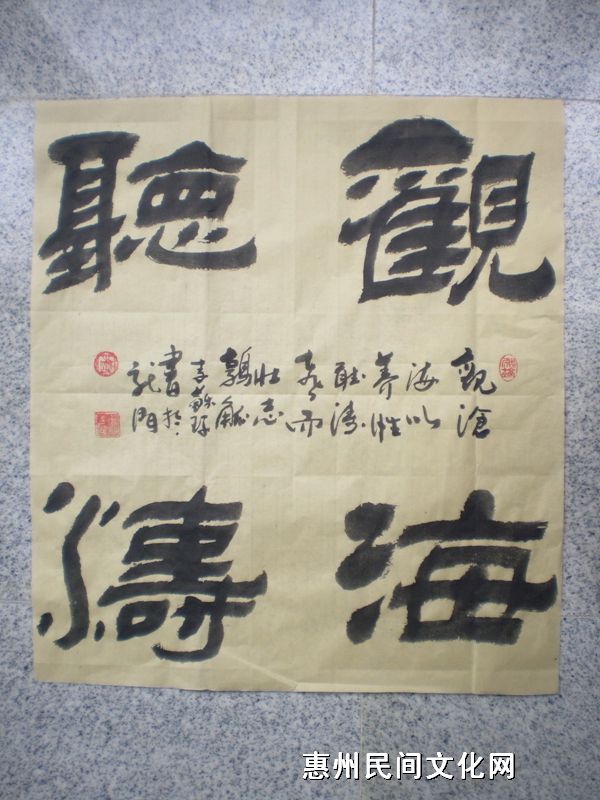 觀海
聽濤
觀滄
海以
養性
聽濤
而
壯志
書於
龍門
惠州民间文化网